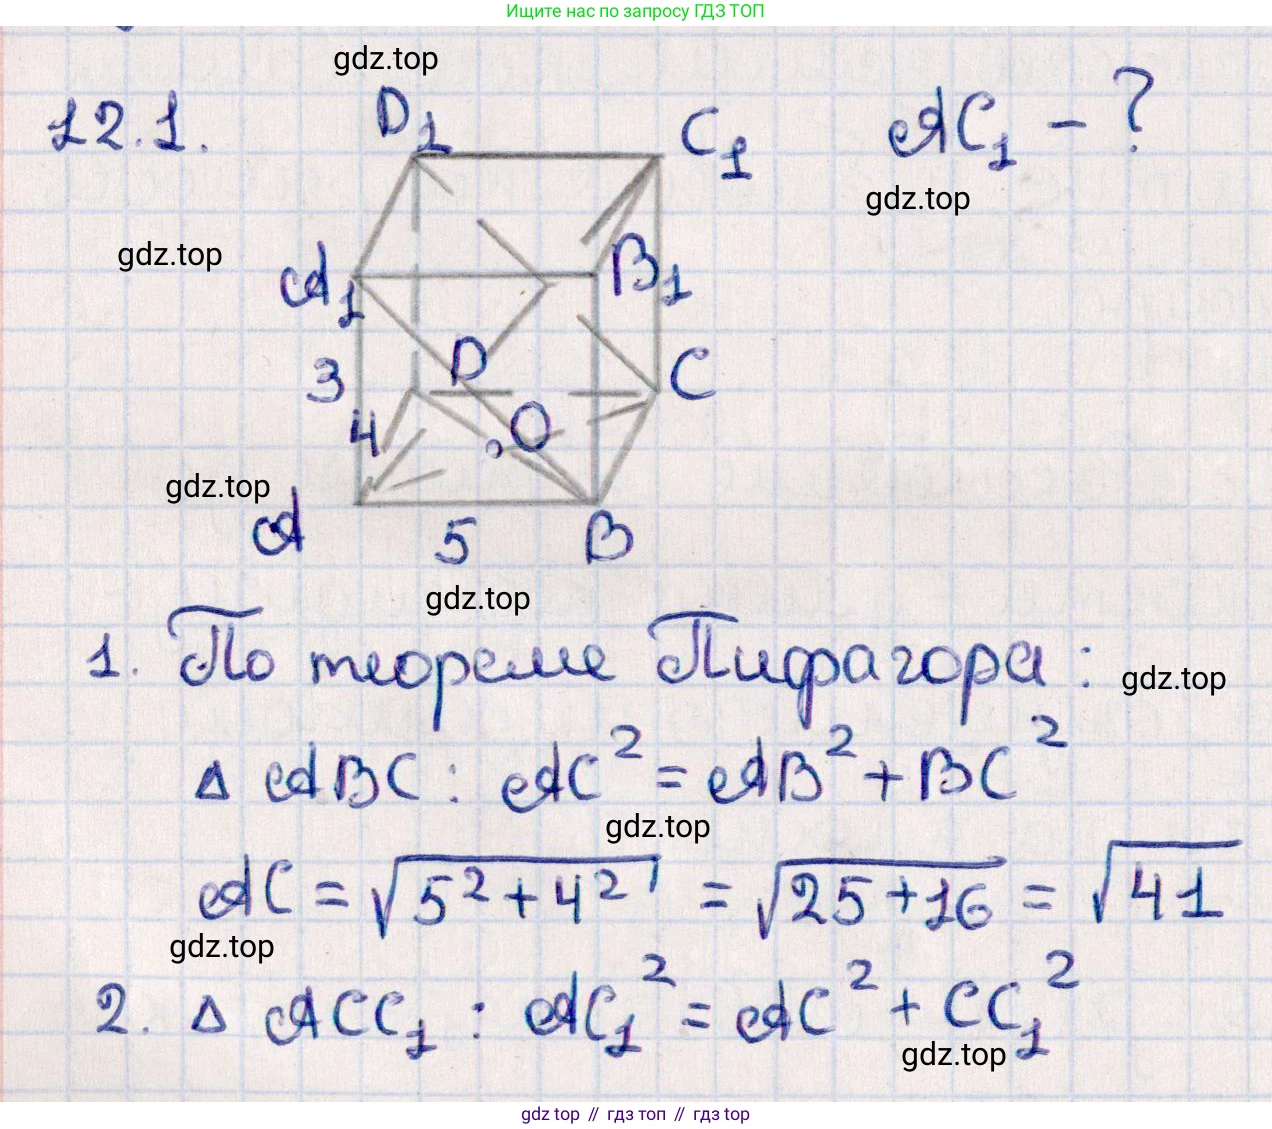 Ищите нас по запросу ГДЗ ТОП
gdz.top
12.1.
D₁
C₁
AC₁ - ?
gdz.top
gdz.top
A₁
B₁
3
D
C
4
O
gdz.top
A
5
B
gdz.top
1. По теореме Пифагора:
gdz.top
Δ ABC: AC² = AB² + BC²
gdz.top
AC = √(5² + 4²) = √(25 + 16) = √41
gdz.top
2. Δ ACC₁: AC₁² = AC² + CC₁²
gdz.top
gdz top // гдз топ // gdz top